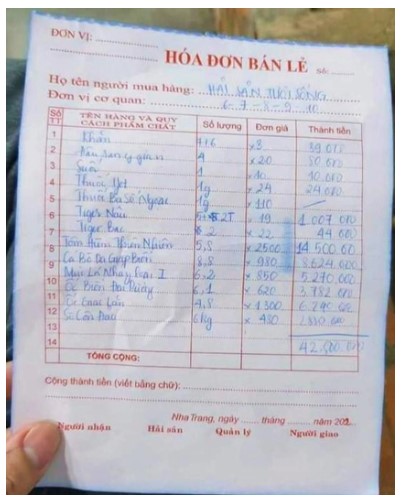 ĐƠN VỊ:
HÓA ĐƠN BÁN LẺ Số:
Họ tên người mua hàng: HẢI SẢN TƯƠI SỐNG
Đơn vị cơ quan: 6-7-8-9-10
Số TT TÊN HÀNG VÀ QUY CÁCH PHẨM CHẤT Số lượng Đơn giá Thành tiền
1 Khăn ×3 39 000
2 4 ×20 80 000
3 Suối 1 ×10 10.000
4 Thuốc Jet 1g ×24 24.000
5 Thuốc Ba Số Ngoại 1g ×110
6 Tiger Nâu 2T ×19 1.007 000
7 Tiger Bạc 2 ×22 44 000
8 Tôm Hùm Thiên Nhiên 5,8 ×2500 14 500.00
9 Cá Bò Da Giáp Biển 8,8 ×980 8.624.000
10 Mực Lá Nháy Loại I 6,2 ×850 5.270.000
11 Ốc Biển Đại Dương 6,1 ×620 3.782 000
12 Ốc Gai Lớn 4,8 ×1300 6.240.00
13 6kg ×480
14 42.000.000
TỔNG CỘNG:
Cộng thành tiền (viết bằng chữ):
Nha Trang, ngày ...... tháng ...... năm 202..
Người nhận Hải sản Quản lý Người giao